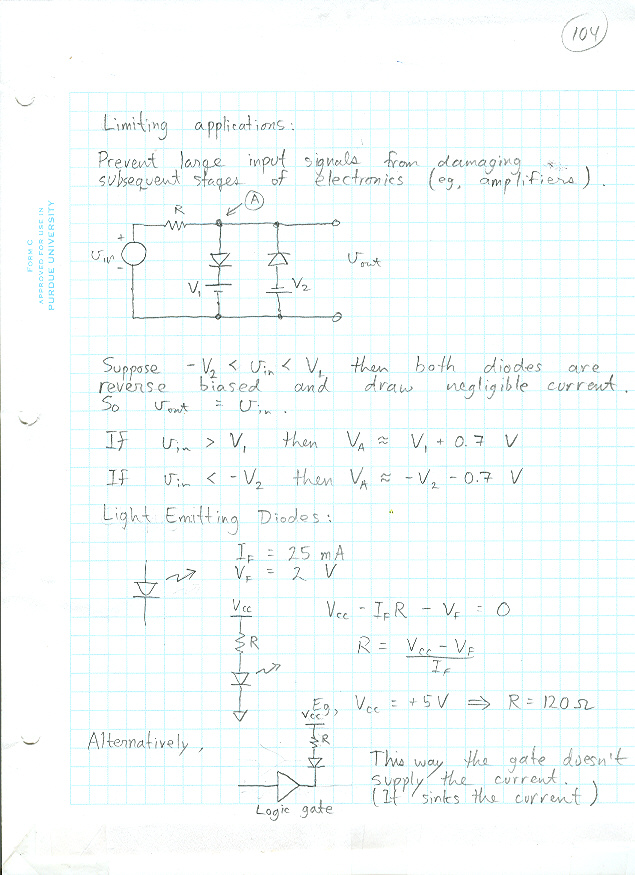 104
Limiting applications:
Prevent large input signals from damaging
subsequent stages of electronics (eg, amplifiers).
FORM C
APPROVED FOR USE IN
PURDUE UNIVERSITY
R
A
+
Vin
-
V1
V2
Vout
Suppose -V2 < Vin < V1 then both diodes are
reverse biased and draw negligible current.
So Vout = Vin.
If Vin > V1 then VA ≈ V1 + 0.7 V
If Vin < -V2 then VA ≈ -V2 - 0.7 V
Light Emitting Diodes:
IF = 25 mA
VF = 2 V
Vcc
R
Vcc - IFR - VF = 0
R = Vcc - VF
IF
Eg, Vcc = +5V ⇒ R = 120Ω
Alternatively,
Vcc
R
Logic gate
This way the gate doesn't
supply the current.
(It sinks the current)